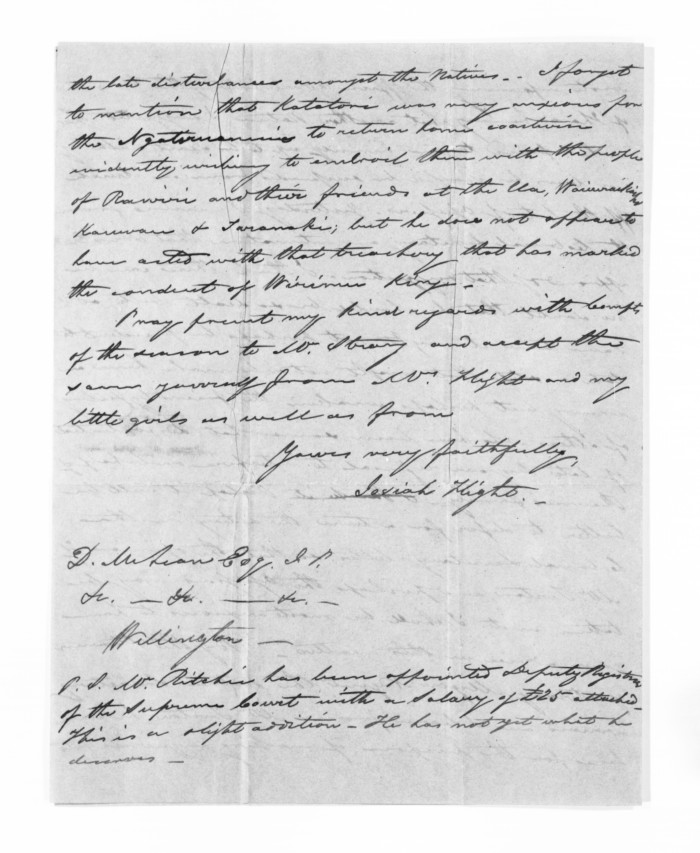 the late disturbances amongst the Natives -. I forget
to mention that Katatori was very anxious for
the Ngateruanuis to return home coastwise
evidently wishing to embroil them with the people
of Rawiri and their friends at the Ua, Waiwaikiho
Kaiwau & Taranaki; but he does not appear to
have acted with that treachery that has marked
the conduct of Wirimu King -
Pray present my kind regards with Compts,
of the season to Mr. Strang and accept the
same yourself from Mrs Flight and my
little girls as well as from
Yours very faithfully,
Josiah Flight. -
D. McLean Esq. J.P.
&c. — &c. — &c. -
Wellington —
P.S. Mr. Ritchie has been appointed Deputy Registrar
of the Supreme Court with a Salary of £25 attached
This is a slight addition - He has not yet what he
deserves —